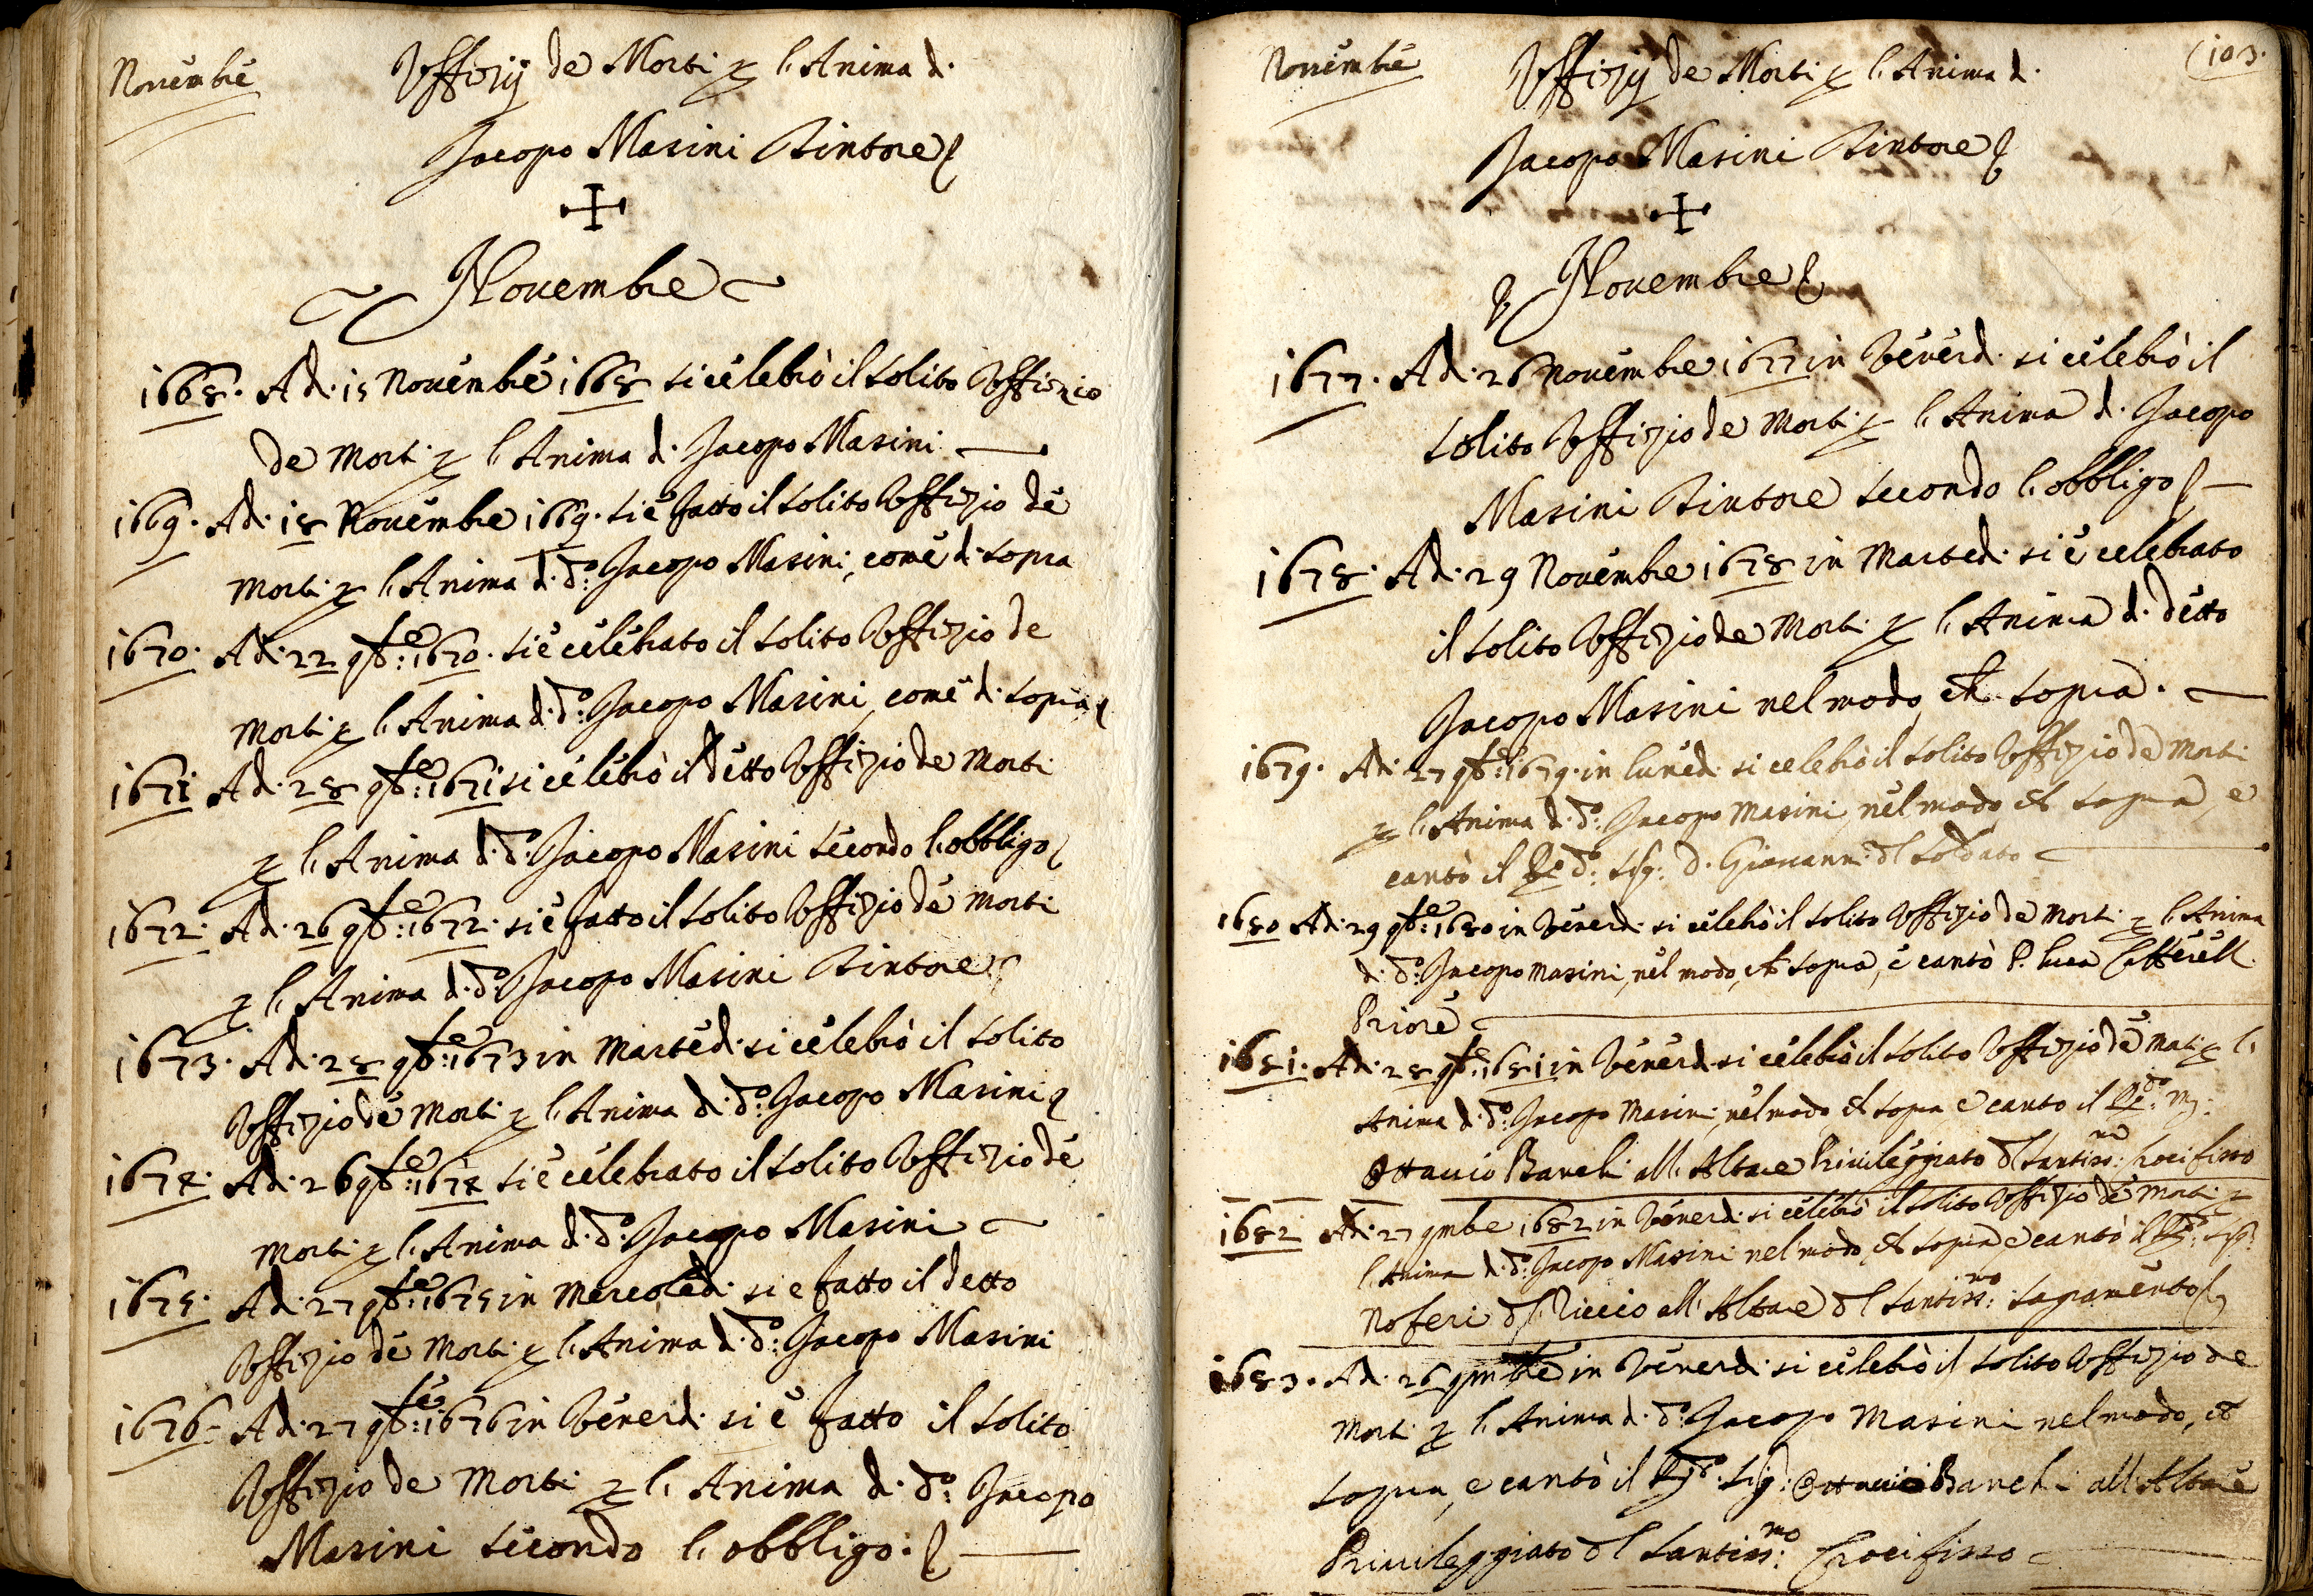 Novembre
Uffizij de Morti p l'Anima di
Jacopo Masini Tintore
Novembre
1668. Adi 15 Novembre 1668 si celebrò il solito Uffizio
de Morti p l'Anima di Jacopo Masini
1669. Adi 18 Novembre 1669. si è fatto il solito Uffizio de
Morti p l'Anima di do: Jacopo Masini, come di sopra
1670. Adi 22 9bre: 1670. si è celebrato il solito Uffizio de
Morti p l'Anima di do: Jacopo Masini, come di sopra
1671 Adi 28 9bre: 1671 si celebrò il detto Uffizio de Morti
p l'Anima di do: Jacopo Masini secondo l'obbligo
1672. Adi 26 9bre: 1672. si è fatto il solito Uffizio de Morti
p l'Anima di do: Jacopo Masini Tintore
1673. Adi 28 9bre: 1673 in Martedi si celebrò il solito
Uffizio de Morti p l'Anima di do: Jacopo Masini
1674. Adi 26 9bre: 1674 si è celebrato il solito Uffizio de
Morti p l'Anima di do: Jacopo Masini
1675. Adi 27 9bre: 1675 in Mercoledi si e fatto il detto
Uffizio de Morti p l'Anima di do: Jacopo Masini
1676. Adi 27 9bre: 1676 in Venerdi si è fatto il solito
Uffizio de Morti p l'Anima di do: Jacopo
Masini secondo l'obbligo.
Novembre
103.
Uffizij de Morti p l'Anima di
Jacopo Masini Tintore
Novembre
1677. Adi 26 Novembre 1677 in Venerdi si celebrò il
solito Uffizio de Morti p l'Anima di Jacopo
Masini Tintore secondo l'obbligo
1678. Adi 29 Novembre 1678 in Martedi si è celebrato
il solito Uffizio de Morti p l'Anima di detto
Jacopo Masini nel modo, et sopra.
1679. Adi 27 9bre: 1679. in lunedi si celebrò il solito Uffizio de Morti
p l'Anima di do: Jacopo Masini, nel modo et sopra, e
cantò il Rdo: Sig: D. Giovanni dl Soldato
1680 Adi 29 9bre: 1680 in Venerdi si celebrò il solito Uffizio de Morti p l'Anima
di do: Jacopo Masini, nel modo, et sopra, e cantò P. Luca
Priore
1681. Adi 28 9bre: 1681 in Venerdi si celebrò il solito Uffizio de Morti p l'
Anima di do: Jacopo Masini, nel modo et sopra e canto il Rdo:
Ottavio Banchi all'Altare Privileggiato dl Santiss:mo Crocifisso
1682 Adi 27 9mbe 1682 in Venerdi si celebrò il solito Uffizio de Morti p
l'Anima di do: Jacopo Masini nel modo, et sopra e cantò il Rdo: Sig:
Noferi dl Riccio all'Altare dl Santiss:mo Sagramento
1683. Adi 26 9mbre in Venerdi si celebrò il solito Uffizio de
Morti p l'Anima di do: Jacopo Masini nel modo, et
sopra, e cantò il Rdo: Sig: Ottavio Banchi all'Altare
Privileggiato dl Santiss:mo Crocifisso